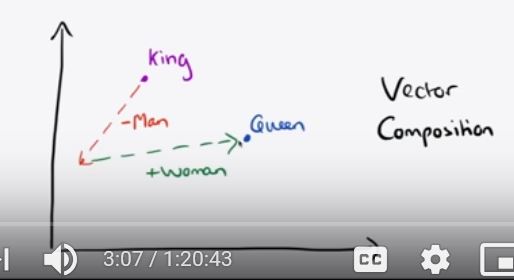 King
-Man
Queen
+Woman
Vector
Composition
3:07 / 1:20:43
CC